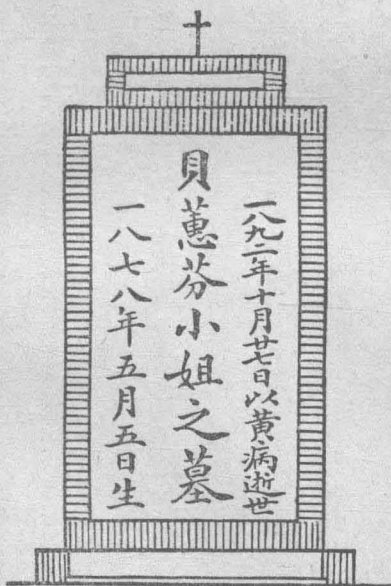 一八九二年十月廿七日以黄病逝世
貝蕙芬小姐之墓
一八七八年五月五日生